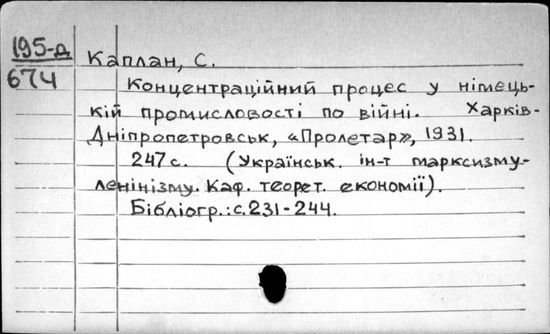 195-д
674
Каплан, С.
Концентраційний процес у німець-
кій промисловості по війні. Харків-
Дніпропетровськ, «Пролетар», 1931.
247 с. (Українськ. ін-т марксизму-
ленінізму. Каф. теорет. економії).
Бібліогр.: с. 231-244.